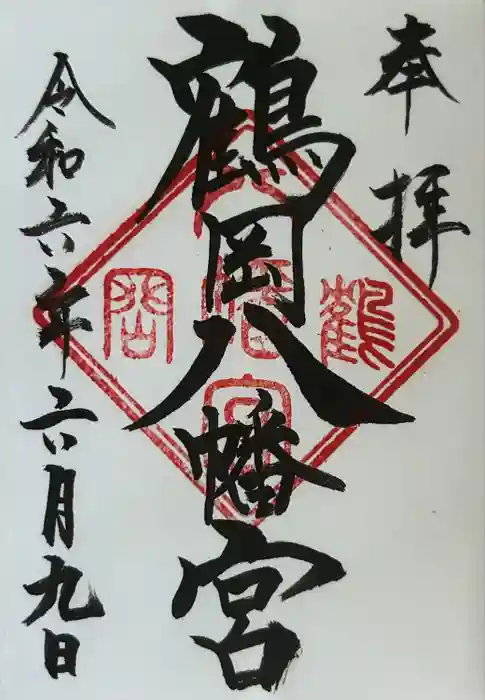 奉拝
鶴岡八幡宮
令和六年六月九日